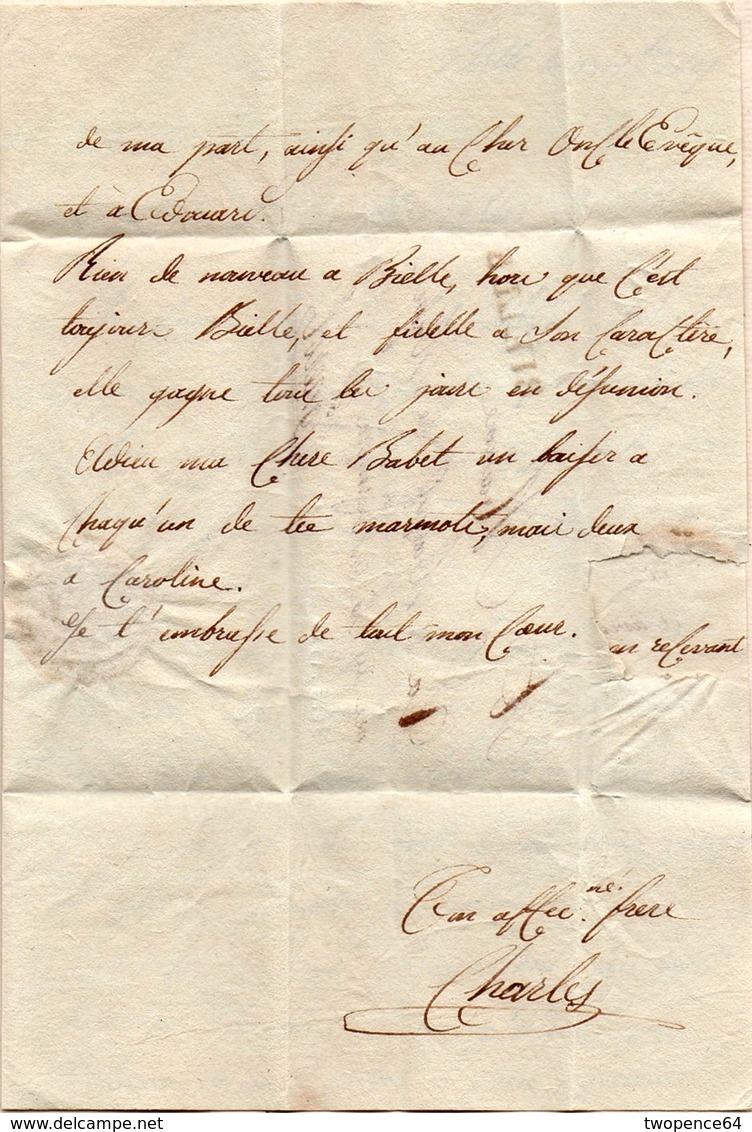 de ma part, ainsi qu'au Cher Oncle Evêque,
et à Edouard.
Rien de nouveau a Bielle, hors que C'est
toujours Bielle, et fidelle a Son Caractère,
elle gagne tous les jours en désunion.
Adieu ma Chere Babet un baiser a
Chaqu'un de tes marmots, mais deux
a Caroline.
Je t'embrasse de tout mon Cœur.
en recevant
Ton affec.né frere
Charles
twopence64